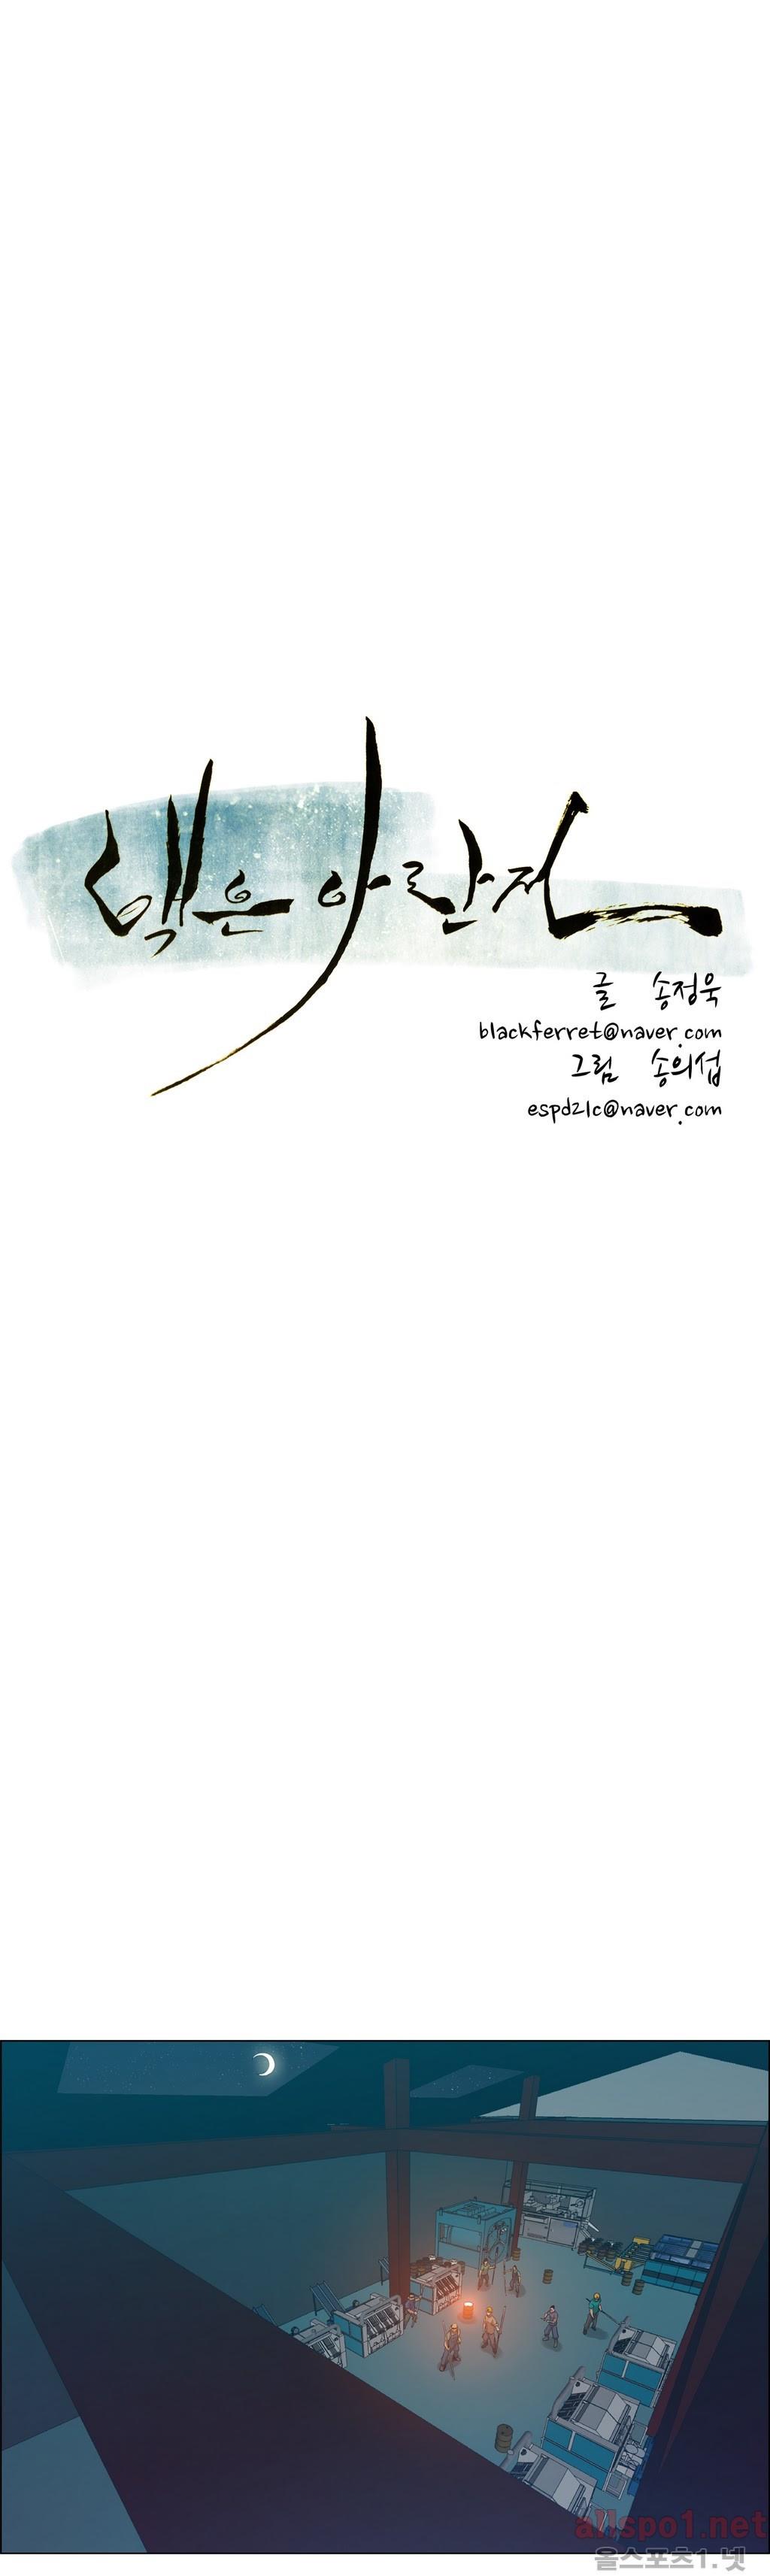 백은아란저
글 송정욱
blackferret@naver.com
그림 송의섭
espd21c@naver.com
allspo1.net
올스포츠1.넷